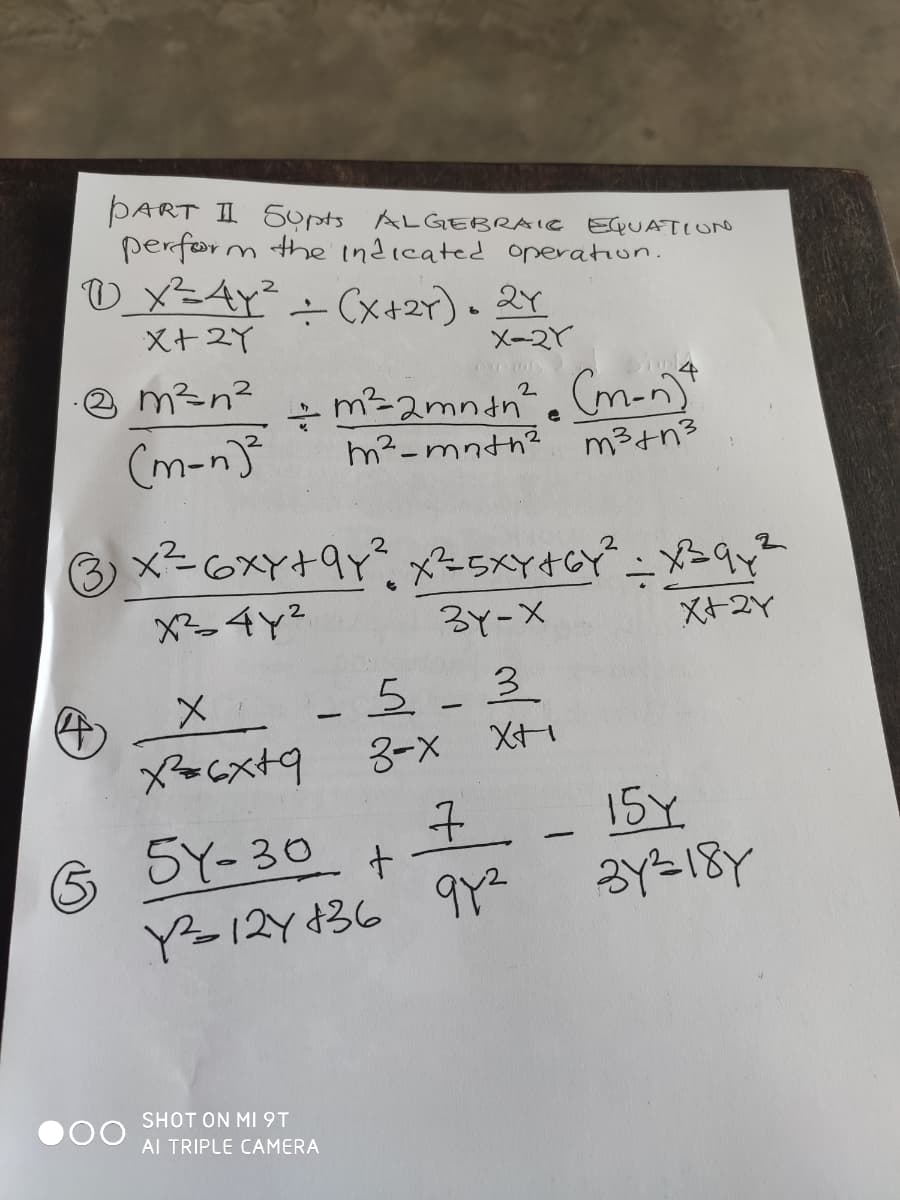 PART II 50pts ALGEBRAIC EQUATION
perform the indicated operation.
① x²-4y² / x+2y ÷ (x+2y) • 2y / x-2y
② m²-n² / (m-n)² ÷ m²-2mn+n² / m²-mn+n² • (m-n)⁴ / m³+n³
③ x²-6xy+9y² / x²-4y² • x²-5xy+6y² / 3y-x ÷ x²-9y² / x+2y
④ x / x²-6x+9 - 5 / 3-x - 3 / x+1
⑤ 5y-30 / y²-12y+36 + 7 / 9y² - 15y / 3y²-18y
SHOT ON MI 9T
AI TRIPLE CAMERA